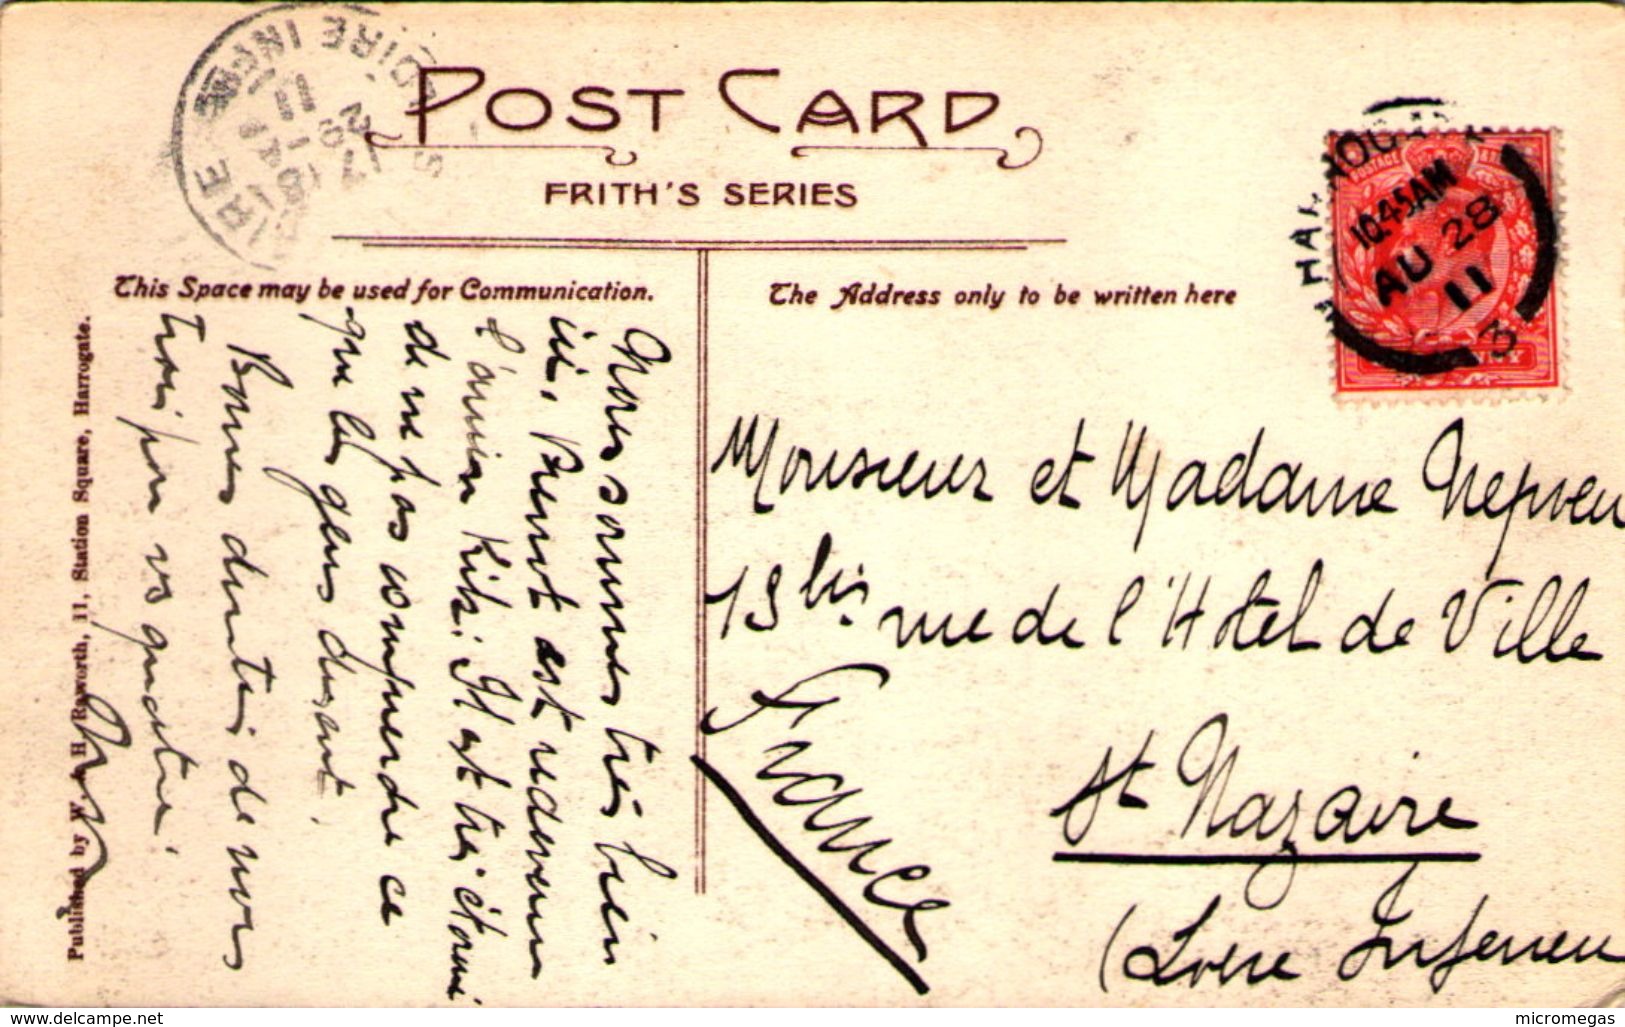 POST CARD
FRITH'S SERIES
This Space may be used for Communication.
The Address only to be written here
Nous sommes très bien
ici, Benot est redevenu
l'ancien Kiki. Il est très étonné
de ne pas comprendre ce
que les gens disent.
Bonnes de nous
trois pour vs quatre.
Monsieur et Madame Nepveu
13 bis rue de l'Hôtel de Ville
St Nazaire
(Loire Inférieu
France
HARROGATE
10.45AM
AU 28
11
3
POSTAGE
LOIRE INF
Published by W. H. Raworth, 11, Station Square, Harrogate.
www.delcampe.net
micromegas